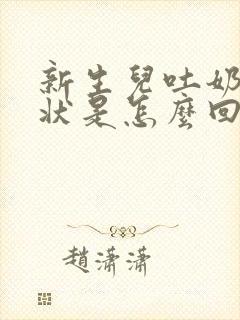 新生兒吐奶
狀是怎麼回
趙瀟瀟